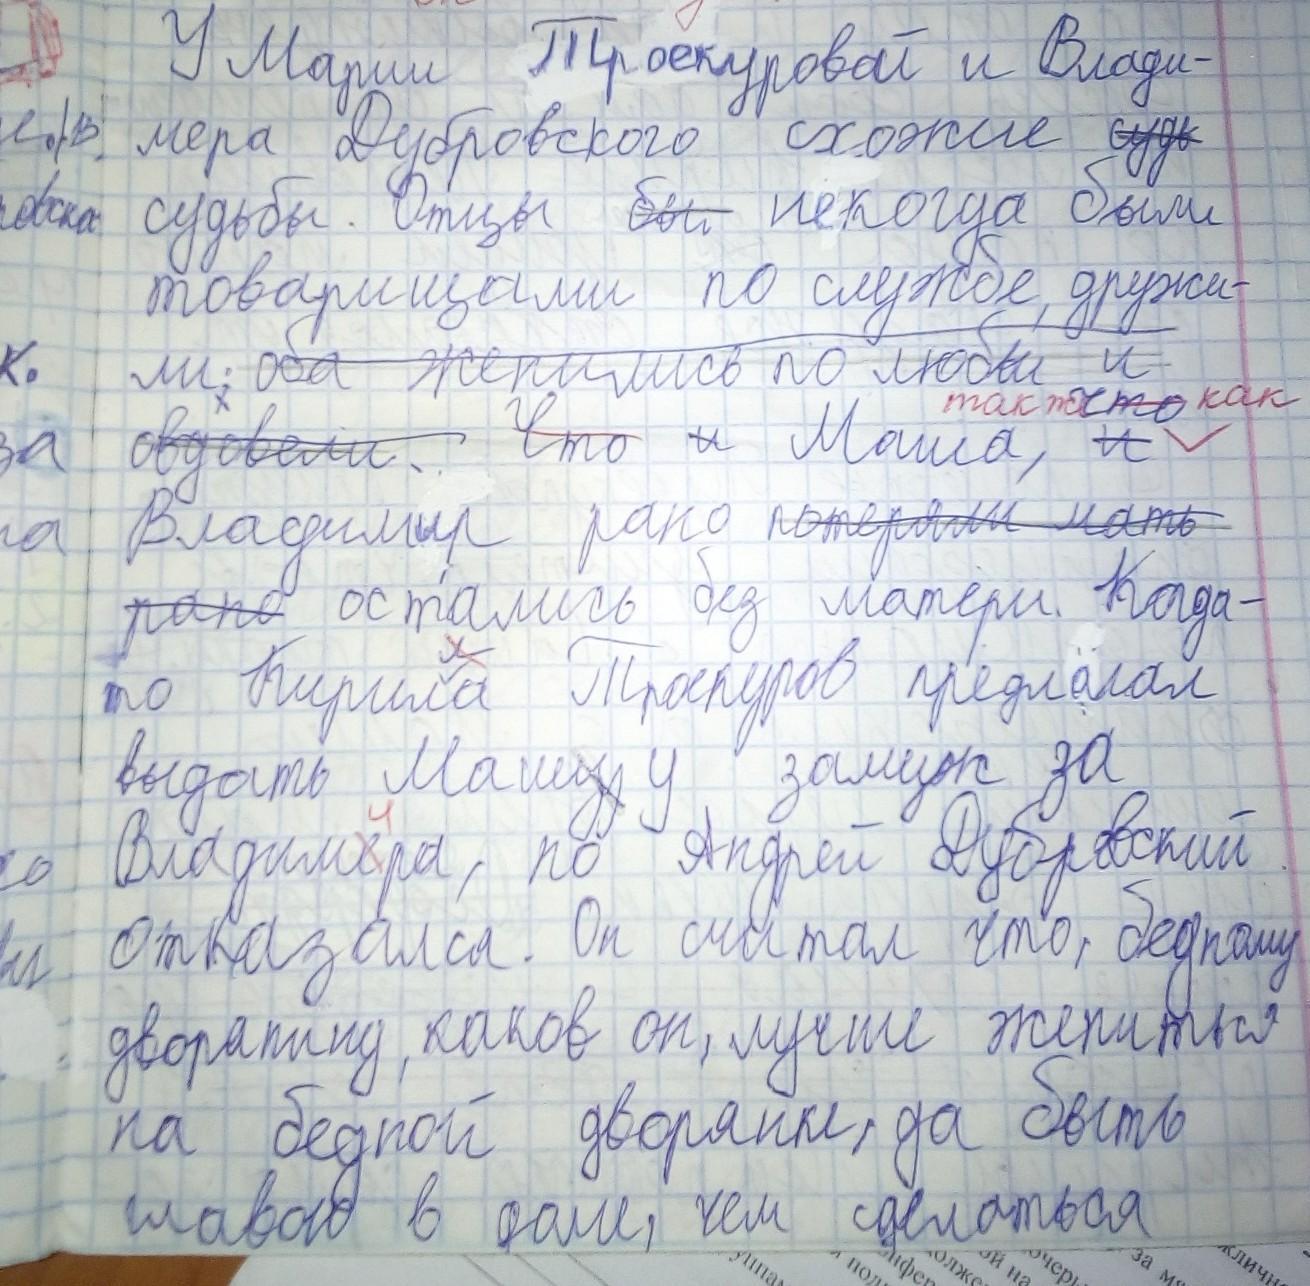 У Марии Троекуровой и Влади-
мера Дубровского схожие судь
судьбы. Отцы был некогда были
товарищами по службе, дружи-
ли; оба женились по любви и
так же как
овдовели. Что и Маша, и
Владимир рано потеряли мать
рано остались без матери. Когда-
то Кирила Троекуров предлагал
выдать Машу замуж за
Владимира, но Андрей Дубровский
отказался. Он считал что, бедному
дворянину, каков он, лучше жениться
на бедной дворянке, да быть
главою в доме, чем сделаться